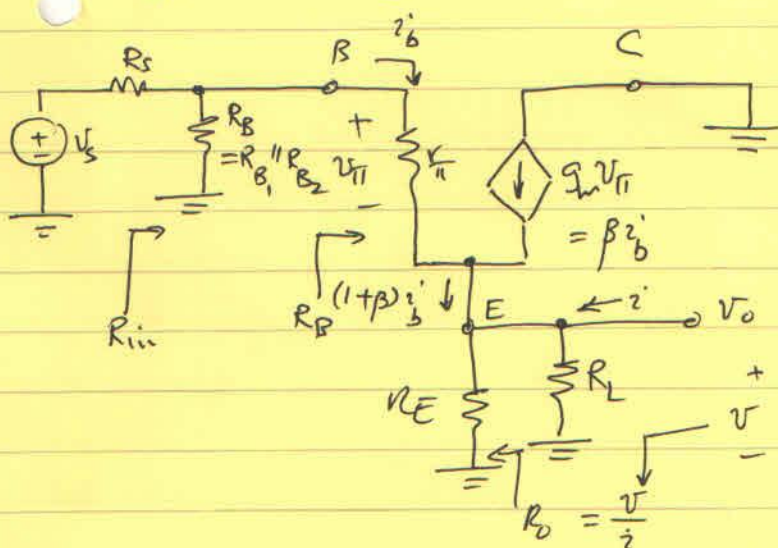 Rs
B
i_b
C
+
-
v_s
R_B
= R_B1 || R_B2
+
v_π
-
r_π
g_m v_π
= β i_b
R_in
R_B
(1+β) i_b
E
i
v_o
R_E
R_L
+
v
-
R_o = v/i